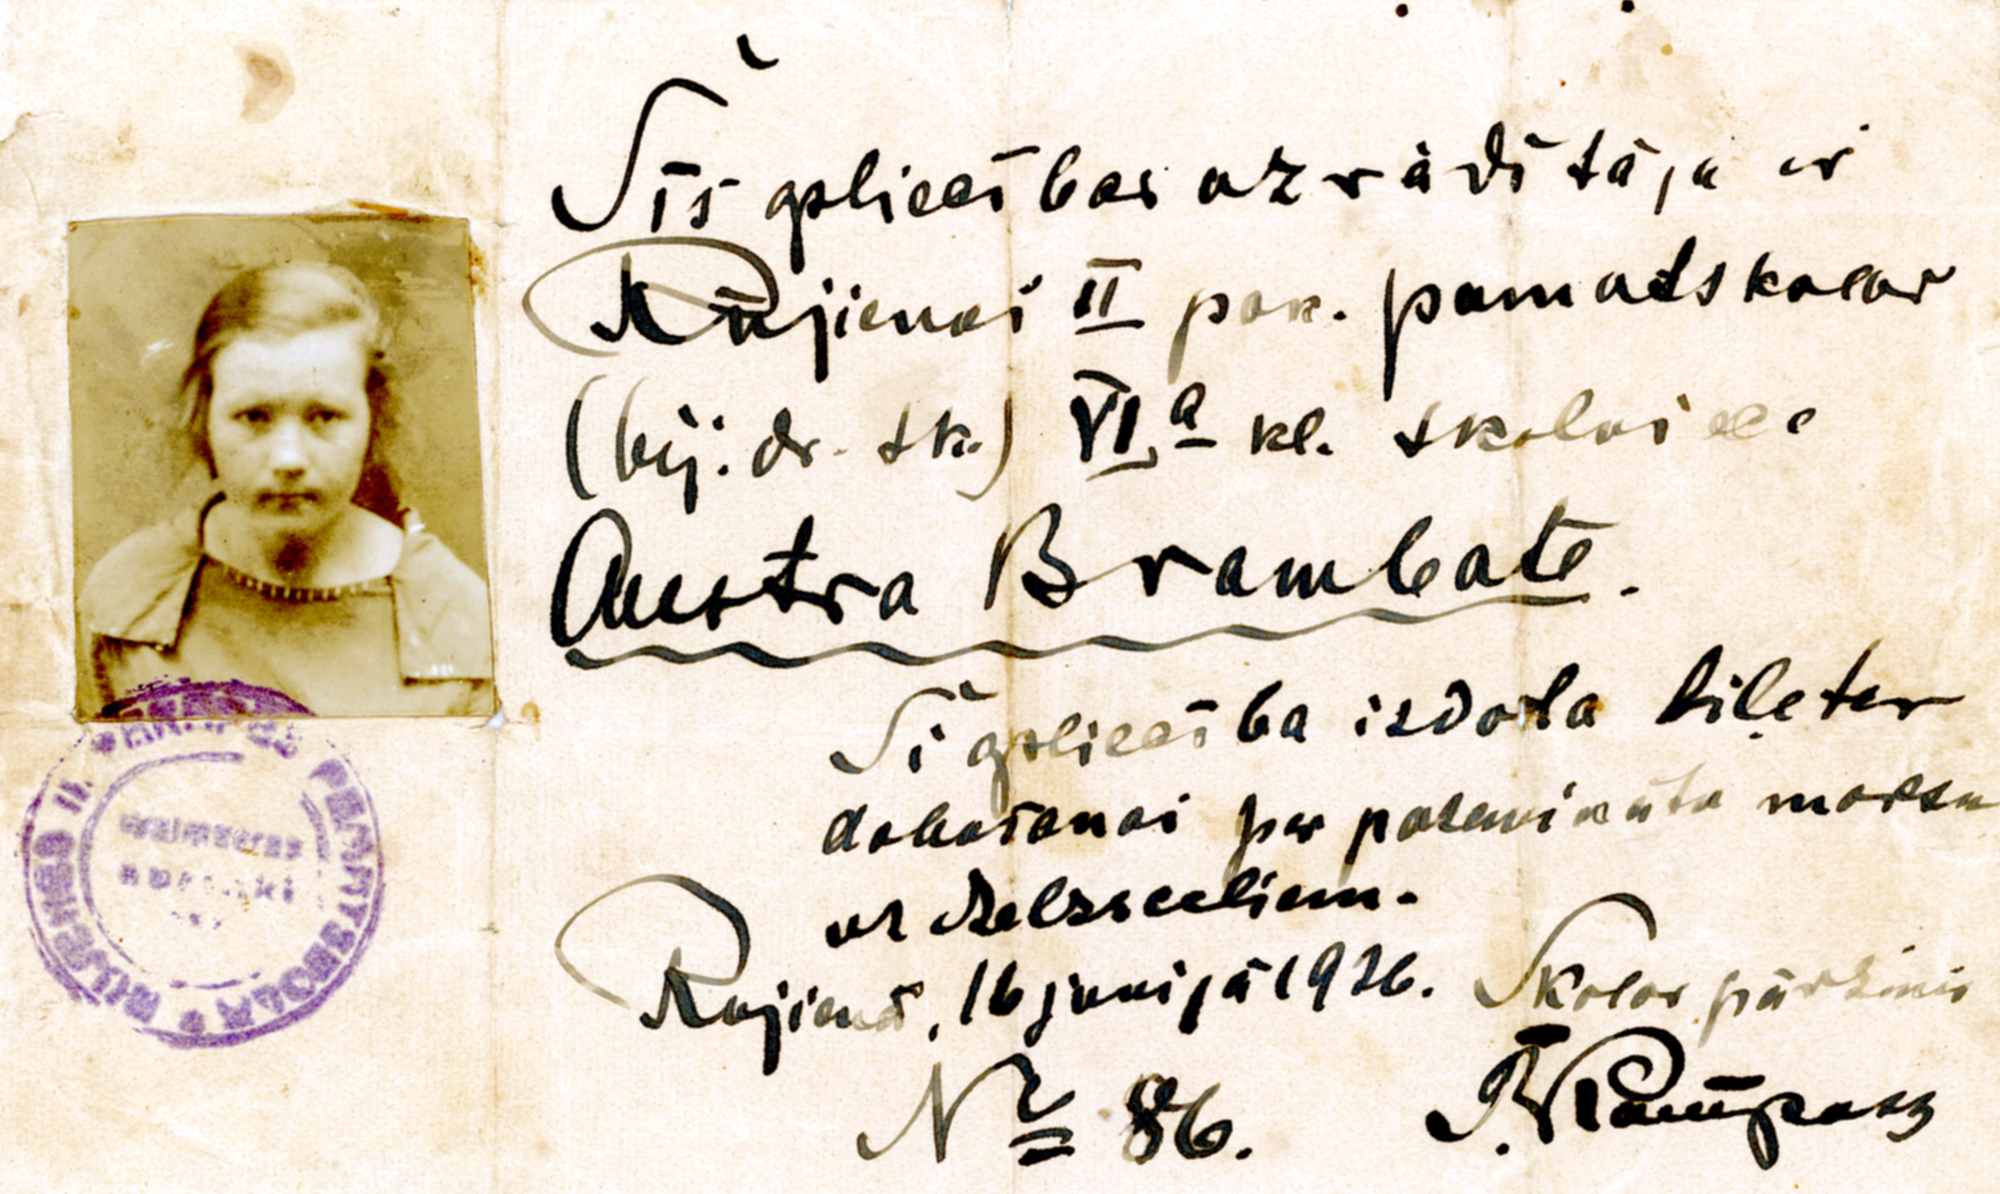 Šīs apliecības uzrādītāja ir
Rūjienas II pak. pamatskolas
(bij. dr. sk.) VI a kl. skolniece
Austra Brambate.
Šī apliecība izdota biļetes
dabūšanai par pazeminātu maksu
uz dzelzsceļiem.
Rujienā, 16 junijā 1926. Skolas pārzinis
№ 86.
RUJIENES II PAMATSKOLA